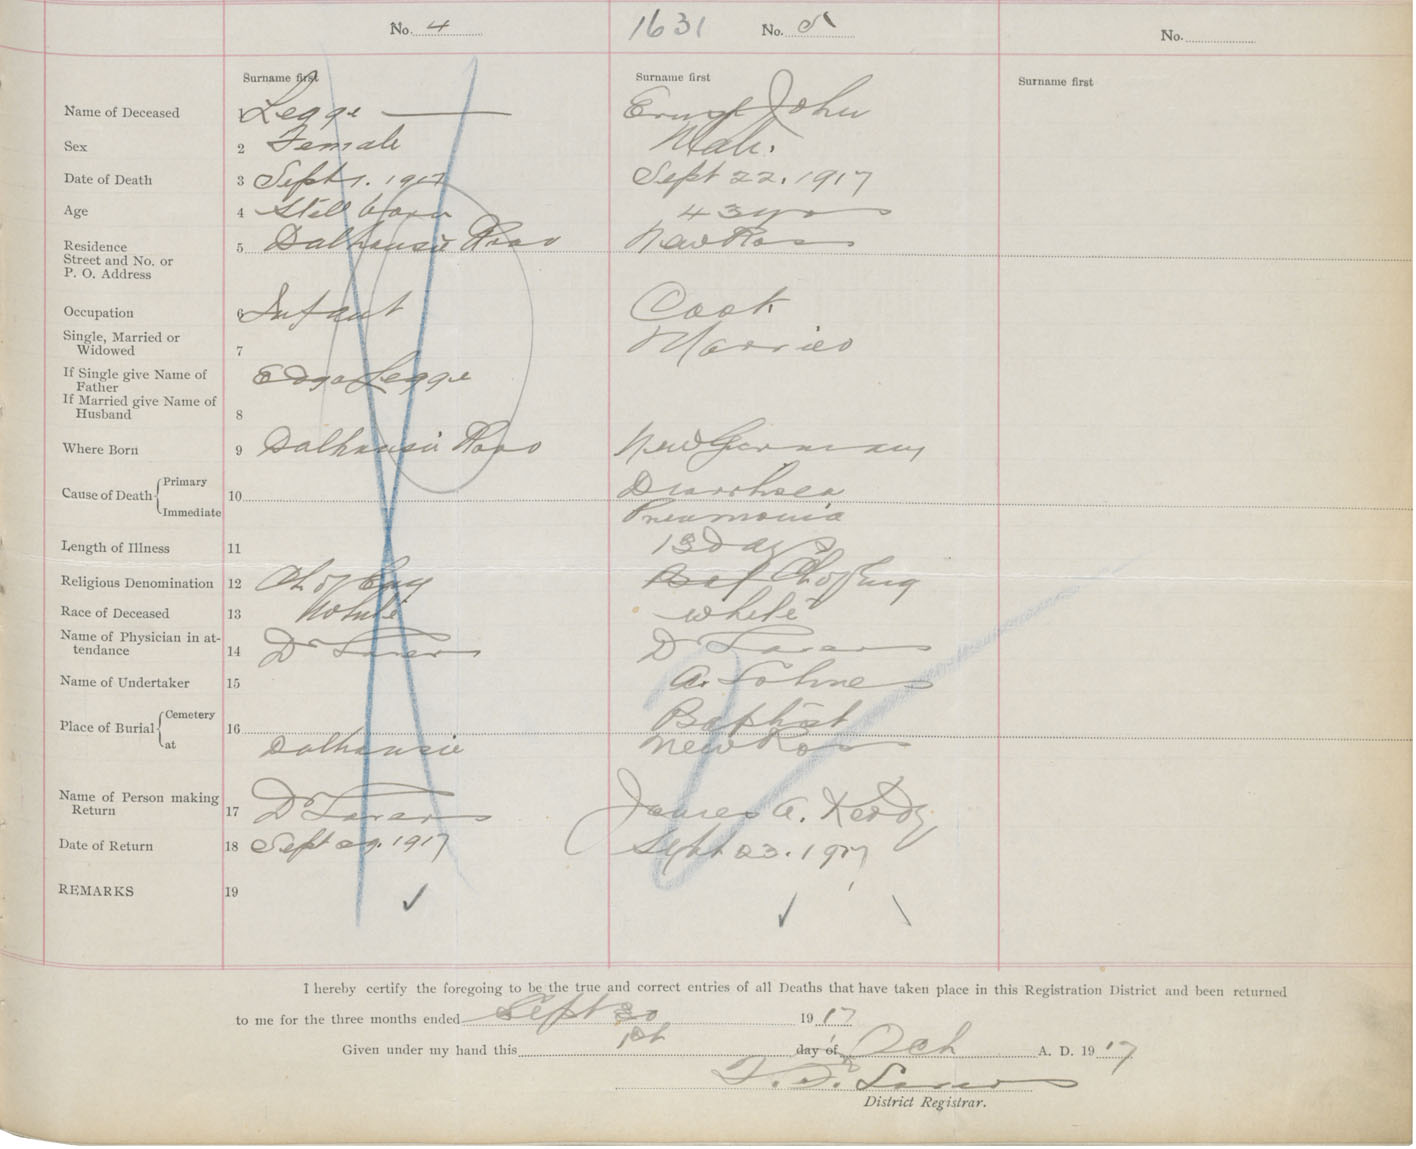 No. 4 1631 No. 5 No.
Surname first Surname first Surname first
Name of Deceased 1 Legge — Ernst John
Sex 2 Female Male.
Date of Death 3 Sept 1. 1917 Sept 22. 1917
Age 4 Still born 43 yrs
Residence
Street and No. or
P. O. Address
5 Dalhousie Road New Ross
Occupation 6 Infant Cook
Single, Married or
Widowed
7 Married
If Single give Name of
Father
If Married give Name of
Husband
8 Legge
Where Born 9 Dalhousie Road New Germany
Cause of Death Primary
Immediate
10 Diarrhoea
Pneumonia
Length of Illness 11 13 Days
Religious Denomination 12 Ch of Eng Bap Ch of Eng
Race of Deceased 13 White White
Name of Physician in at-
tendance
14 Dr D
Name of Undertaker 15 A.
Place of Burial Cemetery
at
16 Baptist
Dalhousie New Ross
Name of Person making
Return
17 Dr James A. Keddy
Date of Return 18 Sept 29. 1917 Sept 23. 1917
REMARKS 19 ✓ ✓
I hereby certify the foregoing to be the true and correct entries of all Deaths that have taken place in this Registration District and been returned
to me for the three months ended Sept 30 1917
Given under my hand this 1st day of Och A. D. 1917
District Registrar.